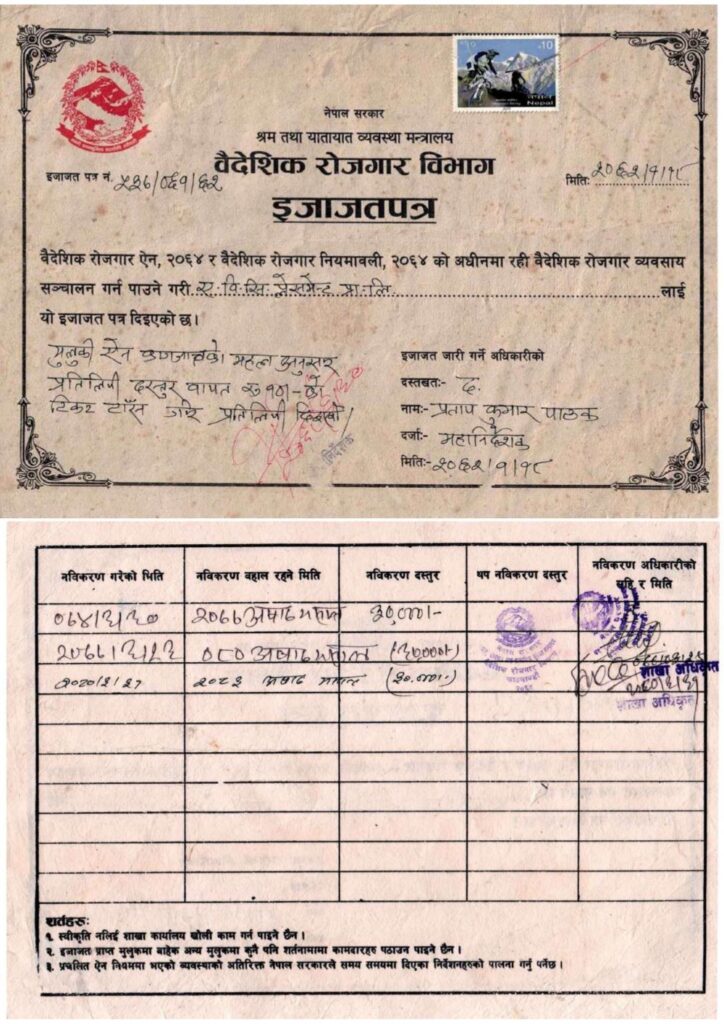 १०
नेपाल Nepal
नेपाल सरकार
श्रम तथा यातायात व्यवस्था मन्त्रालय
वैदेशिक रोजगार विभाग
इजाजत पत्र नं. ५२६/०६१/६२
मिति: २०६२/१/१९
इजाजतपत्र
वैदेशिक रोजगार ऐन, २०६४ र वैदेशिक रोजगार नियमावली, २०६४ को अधीनमा रही वैदेशिक रोजगार व्यवसाय
सञ्चालन गर्न पाउने गरी ए.वि.सि. प्लेसमेन्ट प्रा.लि. लाई
यो इजाजत पत्र दिइएको छ।
मुलुकी ऐन महल अनुसार
प्रतिलिपी दस्तुर वापत रु १०।- को
टिकट टाँस गरि प्रतिलिपी
इजाजत जारी गर्ने अधिकारीको
दस्तखतः- द.
नामः- प्रताप कुमार पाठक
दर्जाः- महानिर्देशक
मितिः- २०६२/१/१९
निर्देशक
नविकरण गरेको मिति नविकरण वहाल रहने मिति नविकरण दस्तुर थप नविकरण दस्तुर नविकरण अधिकारीको सहि र मिति
२०७७ अषाढ मसान्त
०८० अषाढ मसान्त
२०८३ अषाढ मसान्त
शाखा अधिकृत
शाखा अधिकृत
शर्तहरुः
१. स्वीकृति नलिई शाखा कार्यालय खोली काम गर्न पाइने छैन।
२. इजाजत प्राप्त मुलुकमा बाहेक अन्य मुलुकमा कुनै पनि शर्तनामामा कामदारहरु पठाउन पाइने छैन।
३. प्रचलित ऐन नियममा भएको व्यवस्थाको अतिरिक्त नेपाल सरकारले समय समयमा दिएका निर्देशनहरुको पालना गर्नु पर्नेछ।